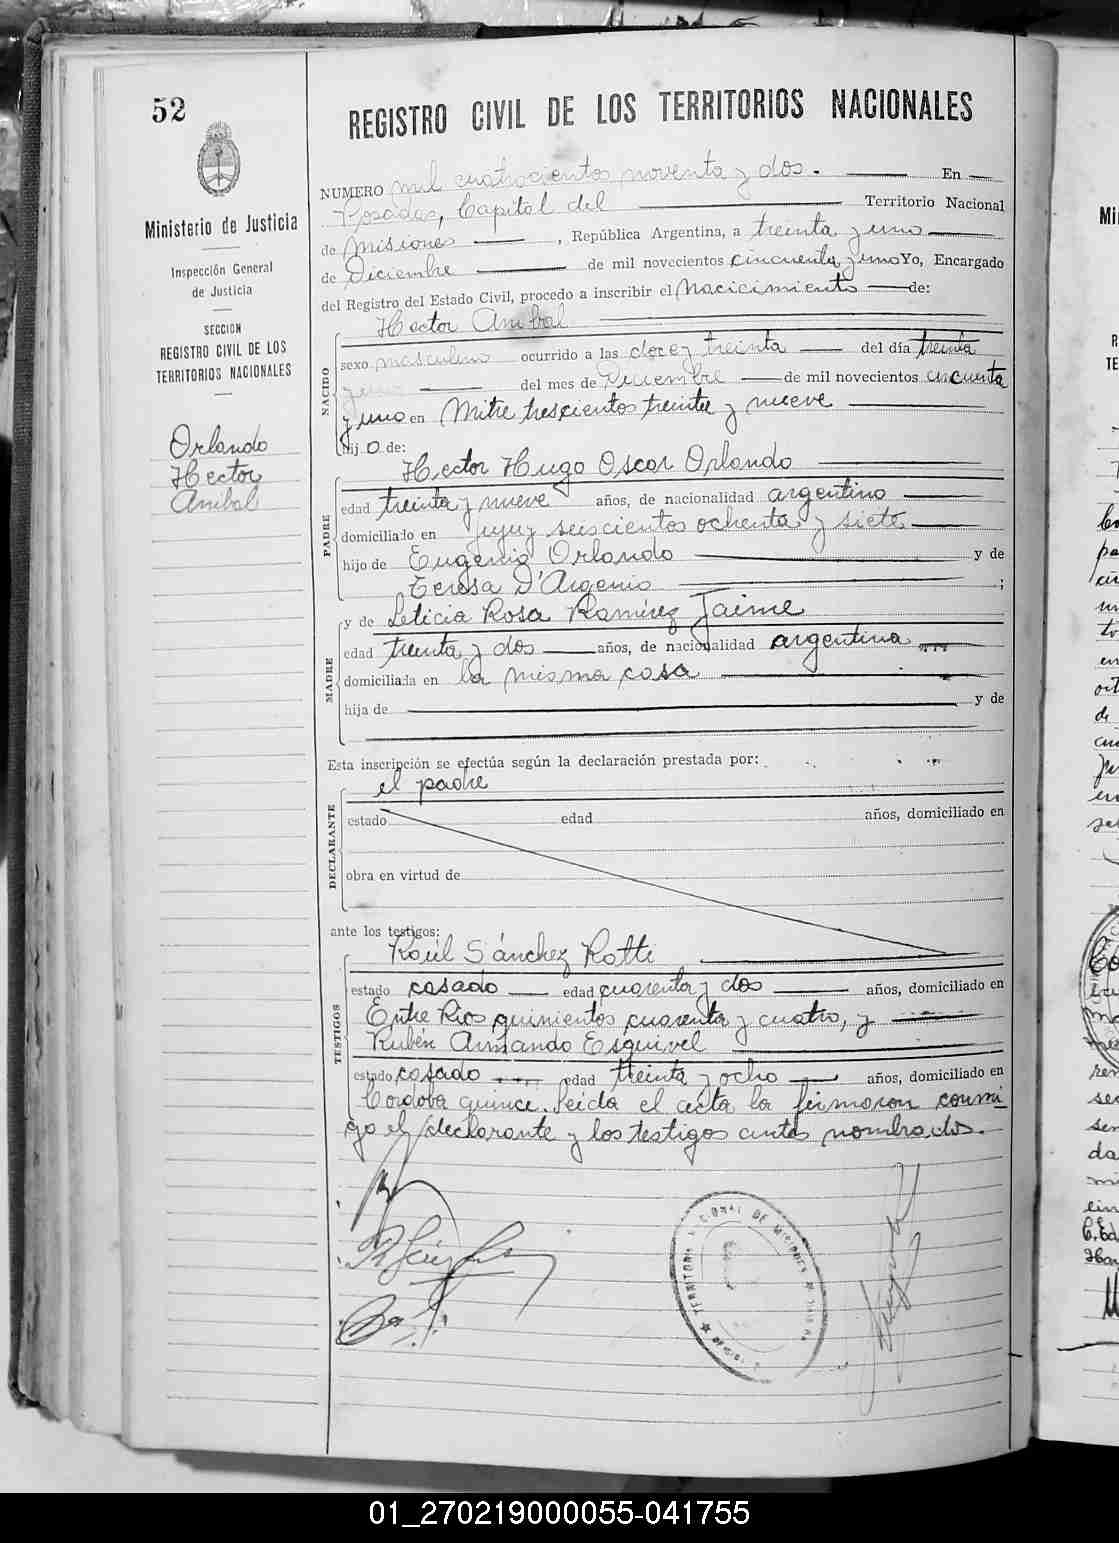 52
REGISTRO CIVIL DE LOS TERRITORIOS NACIONALES
Ministerio de Justicia
Inspección General
de Justicia
SECCION
REGISTRO CIVIL DE LOS
TERRITORIOS NACIONALES
Orlando
Hector
Anibal
NUMERO mil cuatrocientos noventa y dos. En
Posadas, Capital del Territorio Nacional
de Misiones, República Argentina, a treinta y uno
de Diciembre de mil novecientos cincuenta y uno Yo, Encargado
del Registro del Estado Civil, procedo a inscribir el Nacicimiento de:
Hector Anibal
NACIDO
sexo masculino ocurrido a las doce y treinta del día treinta
y uno del mes de Diciembre de mil novecientos cincuenta
y uno en Mitre trescientos treinta y nueve
hijo de:
Hector Hugo Oscar Orlando
PADRE
edad treinta y nueve años, de nacionalidad argentino
domiciliado en Jujuy seiscientos ochenta y siete
hijo de Eugenio Orlando y de
Teresa D'Argenio ;
y de Leticia Rosa Ramírez Jaime
MADRE
edad treinta y dos años, de nacionalidad argentina
domiciliada en la misma casa
hija de y de
Esta inscripción se efectúa según la declaración prestada por:
el padre
DECLARANTE
estado edad años, domiciliado en
obra en virtud de
ante los testigos:
Raúl Sánchez Ratti
TESTIGOS
estado casado edad cuarenta y dos años, domiciliado en
Entre Rios quinientos cuarenta y cuatro, y
Rubén Armando Esquivel
estado casado edad treinta y ocho años, domiciliado en
Cordoba quince. Leida el acta la firmaron conmi
go el declarante y los testigos antes nombrados.
TERRITORIO NACIONAL DE MISIONES
01_270219000055-041755